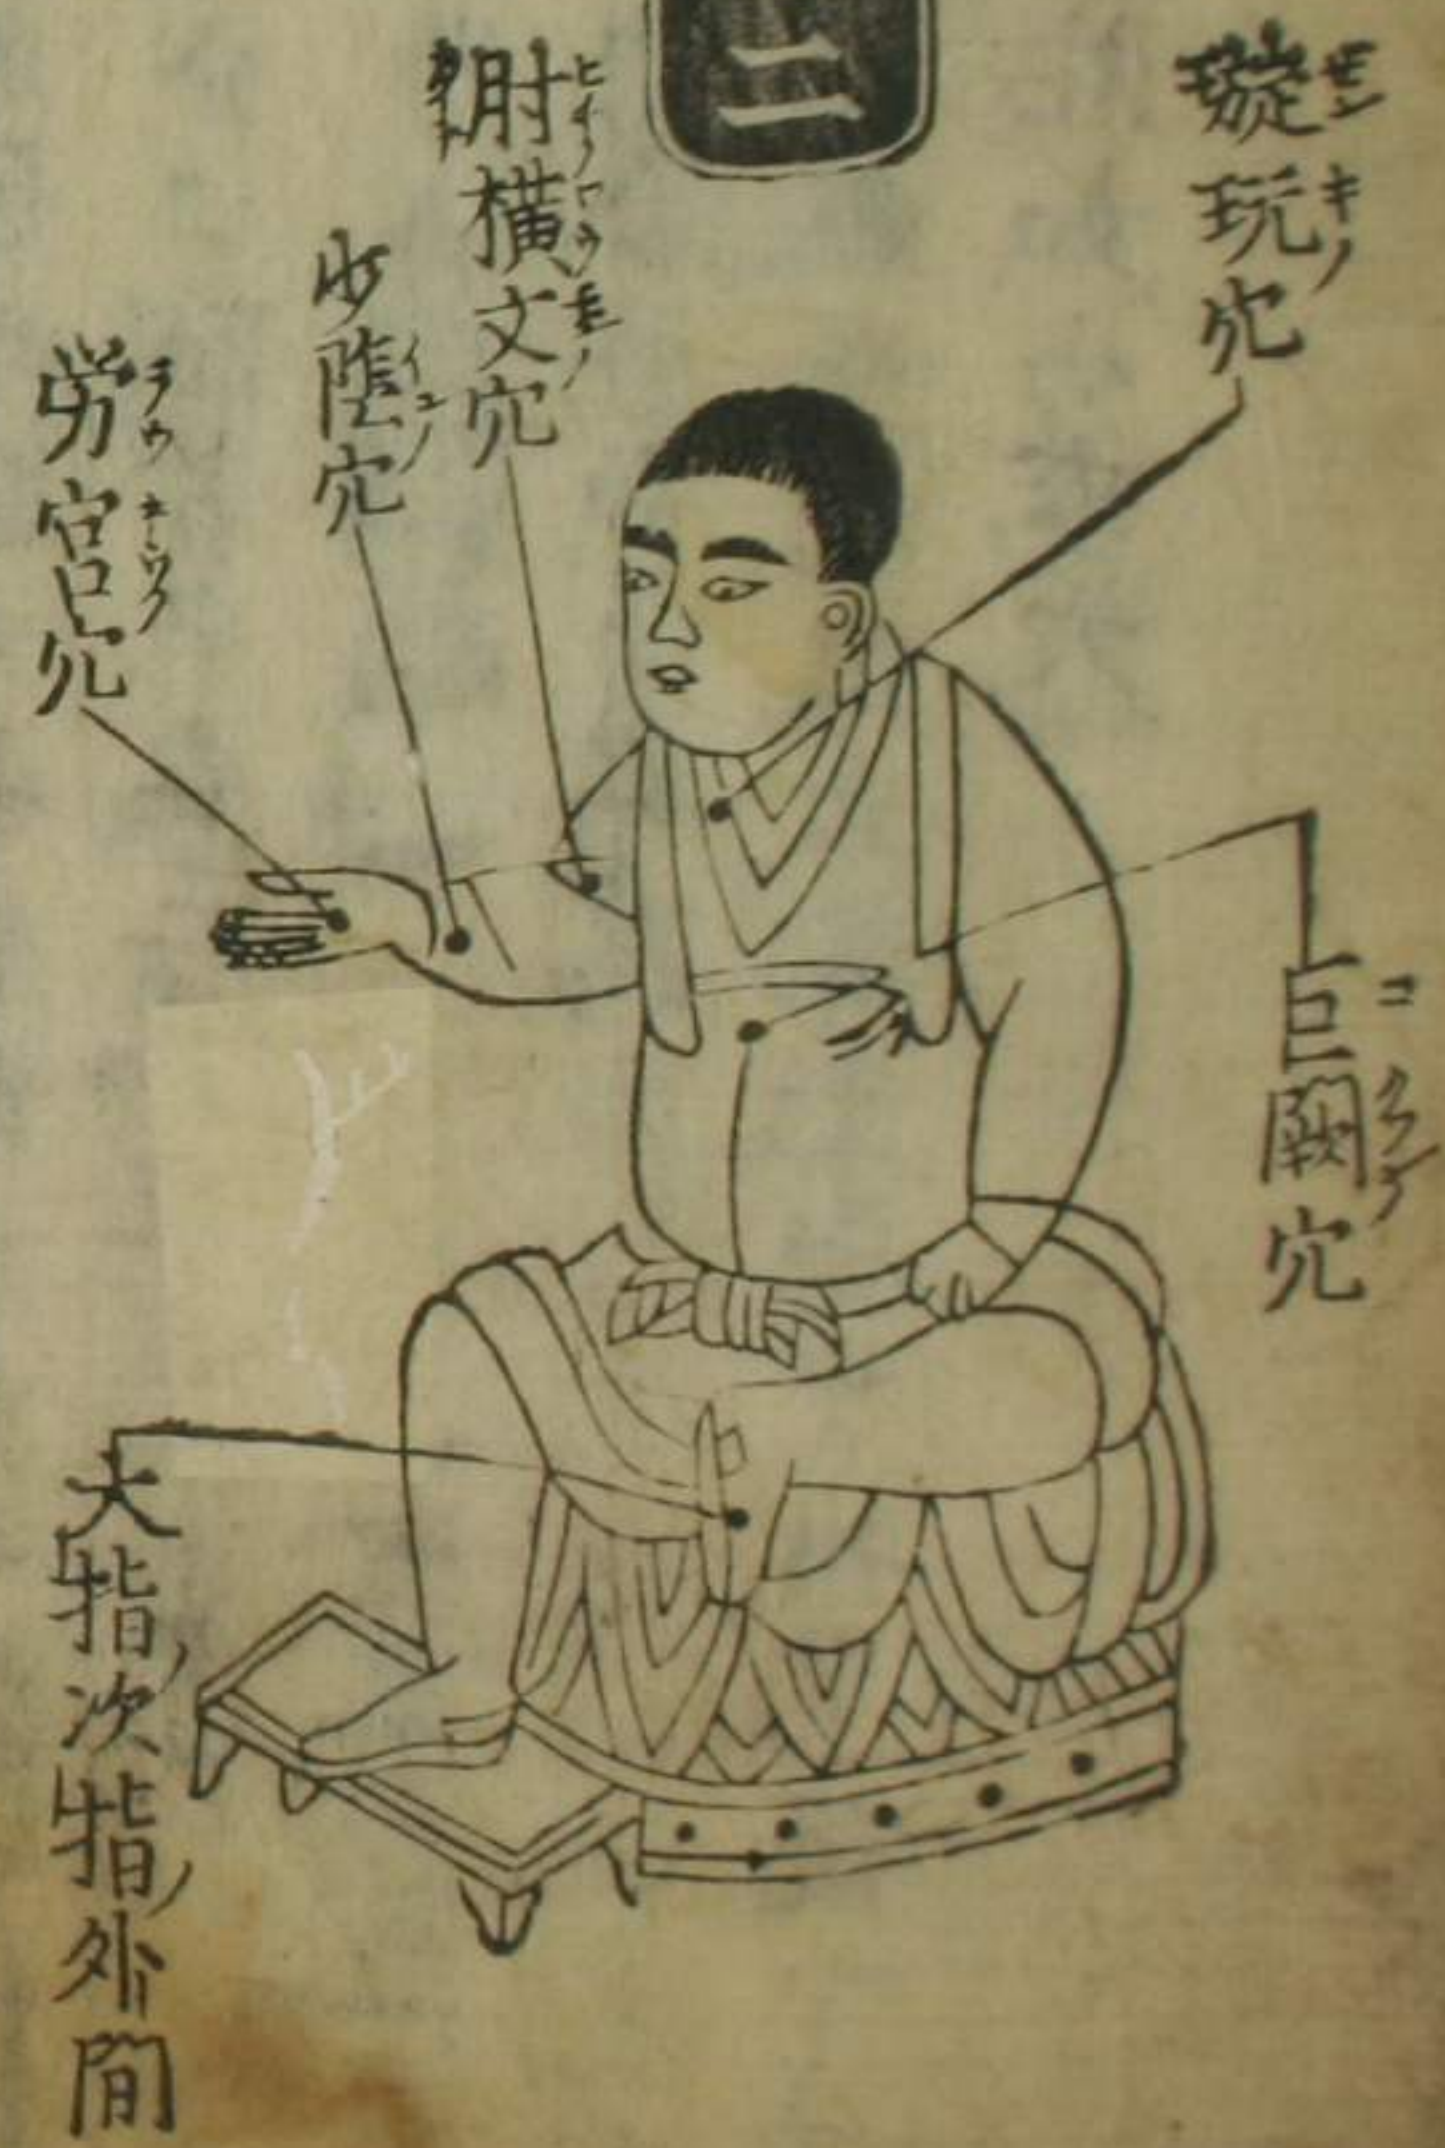 二
璇玩穴
肘横文穴
少陰穴
労宮穴
巨闕穴
大指ノ次指ノ外間